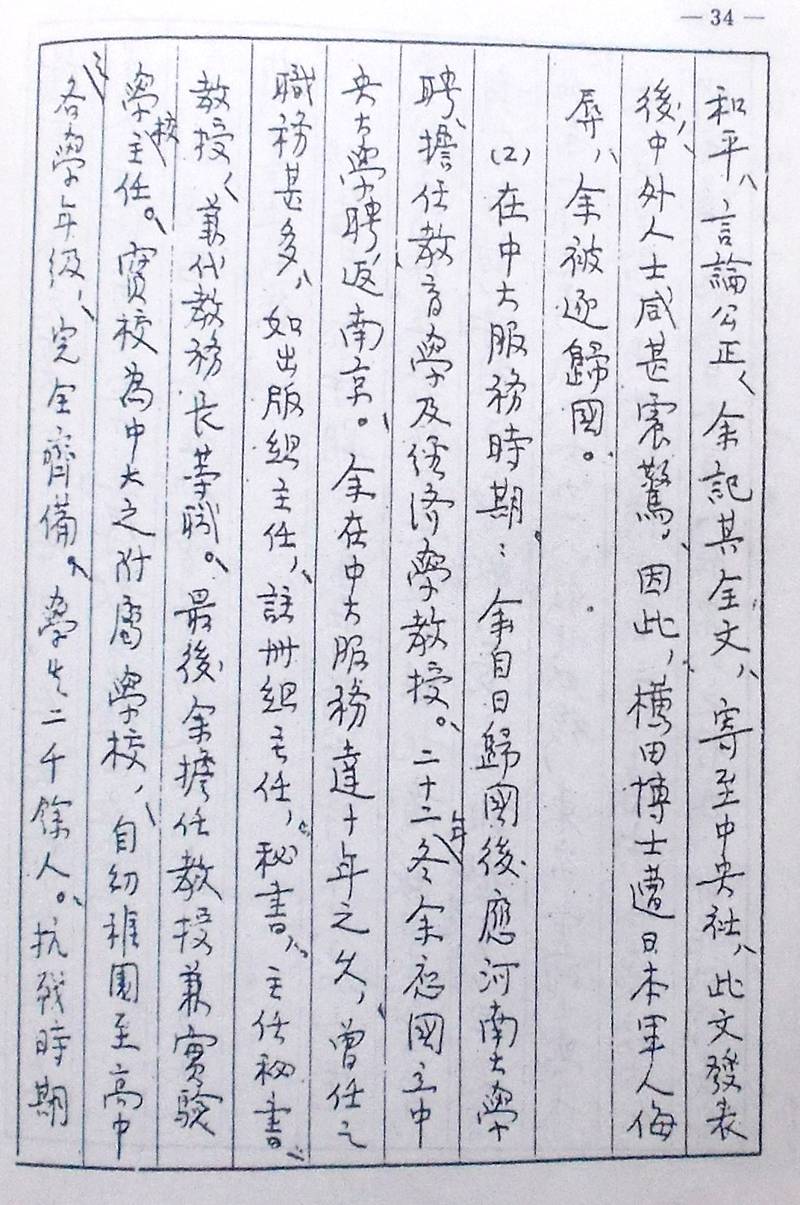 — 34 —
和平，言論公正，余記其全文，寄至中央社，此文發表
後，中外人士咸甚震驚。因此，橫田博士遭日本軍人侮
辱，余被逐歸國。
(2)在中大服務時期：余自日歸國後應河南大學
聘，擔任教育學及經濟學教授。二十二年冬余應國立中
央大學聘返南京。余在中大服務達十年之久，曾任之
職務甚多，如出版組主任，註冊組主任，秘書，主任秘書
教授，兼代教務長等職。最後余擔任教授兼實驗
學校主任。實校為中大之附屬學校，自幼稚園至高中
之各學年級，完全齊備。學生二千餘人。抗戰時期